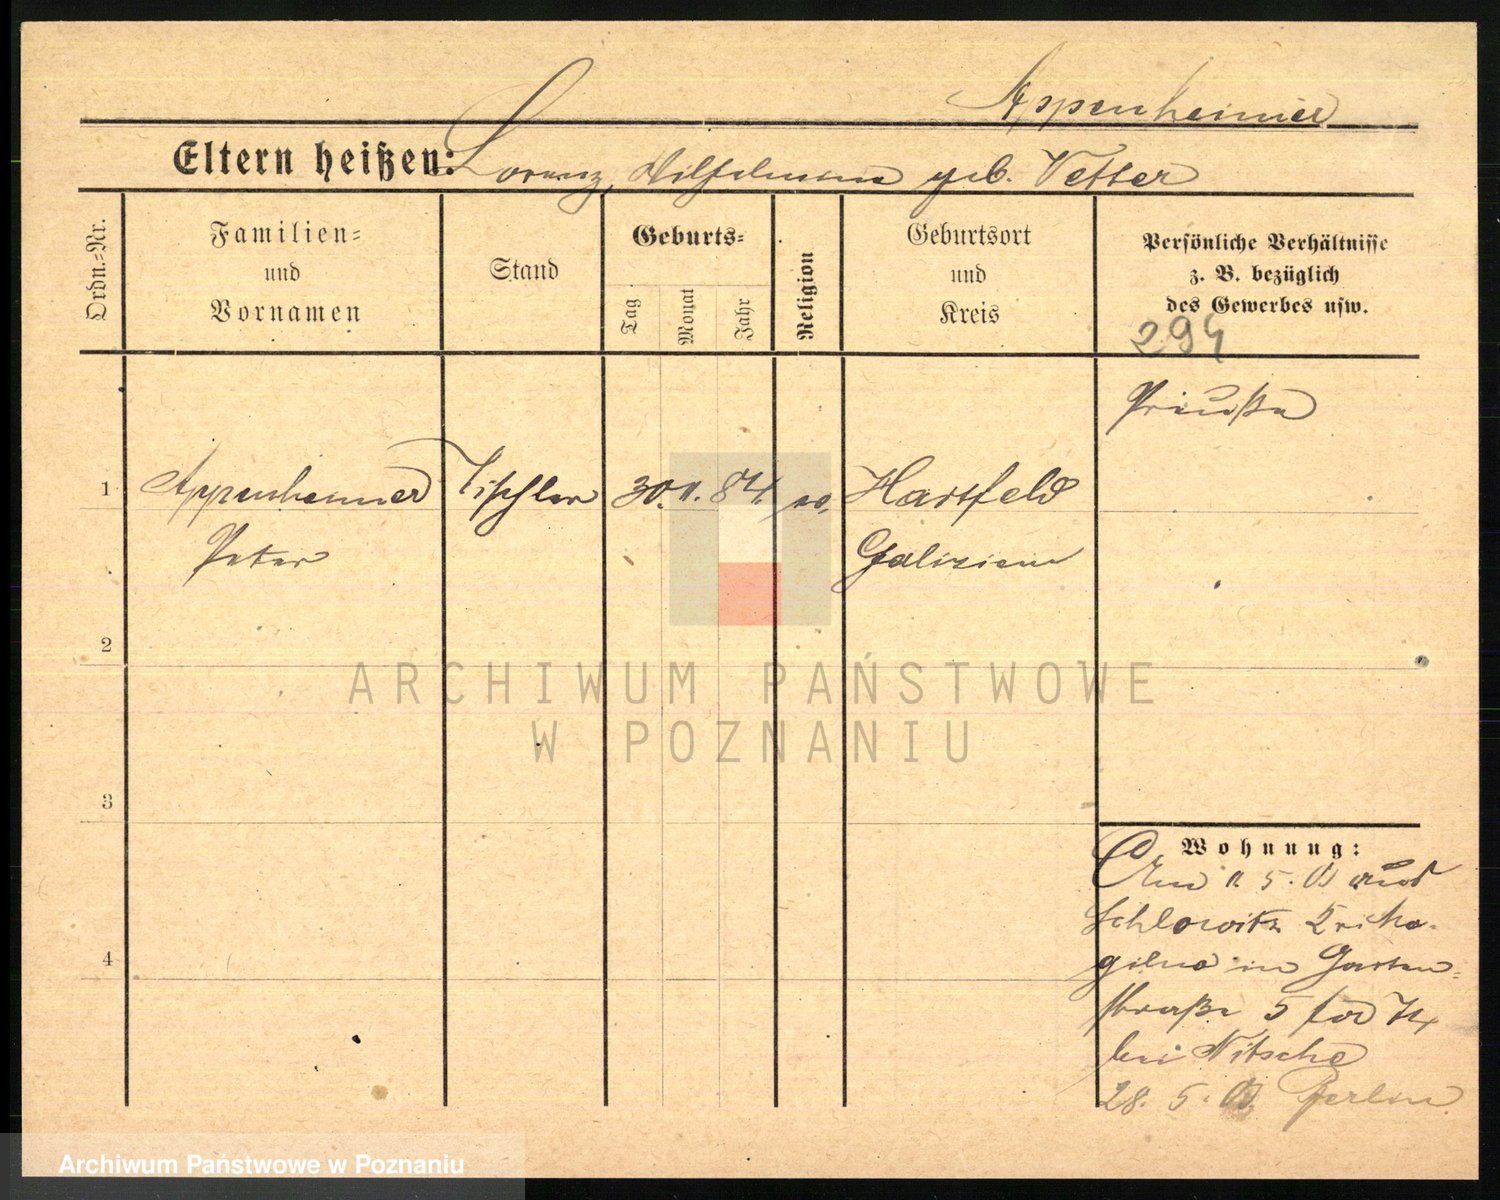 Appenheimer
Eltern heißen: Lorenz, Wilhelmine geb. Vetter
Ordn.-Nr.
Familien-
und
Vornamen
Stand
Geburts-
Tag
Monat
Jahr
Religion
Geburtsort
und
Kreis
Persönliche Verhältnisse
z. B. bezüglich
des Gewerbes usw.
294
Preuße
1 Appenheimer Tischler 30. 84. Hartfeld
Peter Galizien
2
3
4
Wohnung:
5.
Schlowitz
in Garten-
straße 5
bei Nitsche
28. 5. Berlin
ARCHIWUM PAŃSTWOWE
W POZNANIU
Archiwum Państwowe w Poznaniu